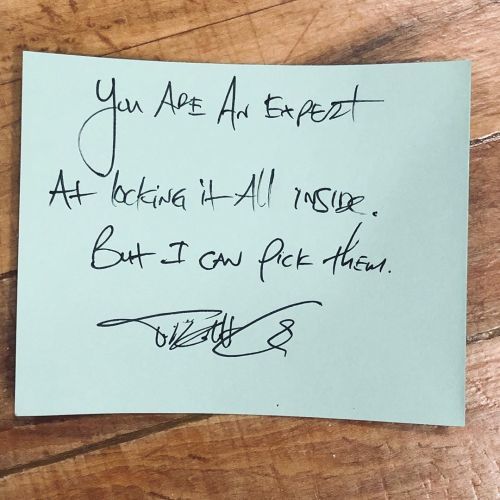 You ARE AN EXPERT
At locking it All INSIDE.
But I CAN PICK them.